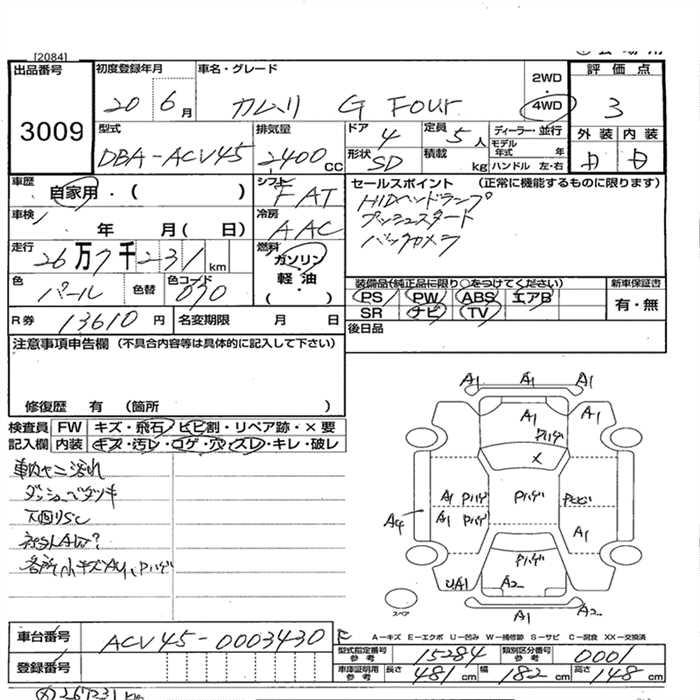 [2084]
出品番号 初度登録年月 車名・グレード 2WD 評価点
3009 20 6月 カムリ G FOUR 4WD 3
型式 排気量 ドア 定員 ディーラー・並行 外装 内装
DBA-ACV45 2400CC 4 5人 モデル年式 年
形状 SD 積載 kg ハンドル 左・右
車歴 自家用・( ) シフト FAT セールスポイント (正常に機能するものに限ります)
HIDヘッドランプ
プッシュスタート
バックカメラ
車検 年 月( 日) 冷房 AAC
走行 26万7千231km 燃料 ガソリン
軽油
・( )・
色 パール 色替 色コード 070
装備品(純正品に限り○をつけてください) 新車保証書
PS PW ABS エアB 有・無
SR ナビ TV
R券 13610円 名変期限 月 日 後日品
注意事項申告欄 (不具合内容等は具体的に記入して下さい)
修復歴 有 (箇所 )
検査員 FW キズ・飛石・ヒビ割・リペア跡・×要
記入欄 内装 キズ・汚レ・コゲ・穴・スレ・キレ・破レ
ダッシュベタツキ
下回りSC
A1 A1 A1
A1 A1
Pハゲ
X
A1 Pハゲ Pハゲ Pヒビ
A1 Pハゲ A1
A4
Pハゲ
UA1 A2
A1 A2
スペア
A-キズ E-エクボ U-凹み W-補修跡 S-サビ C-腐食 XX-交換済
車台番号 ACV45-0003430
登録番号
型式指定番号 参考 15284 類別区分番号 参考 0001
車庫証明用 参考 長さ 481cm 幅 182cm 高さ 148cm